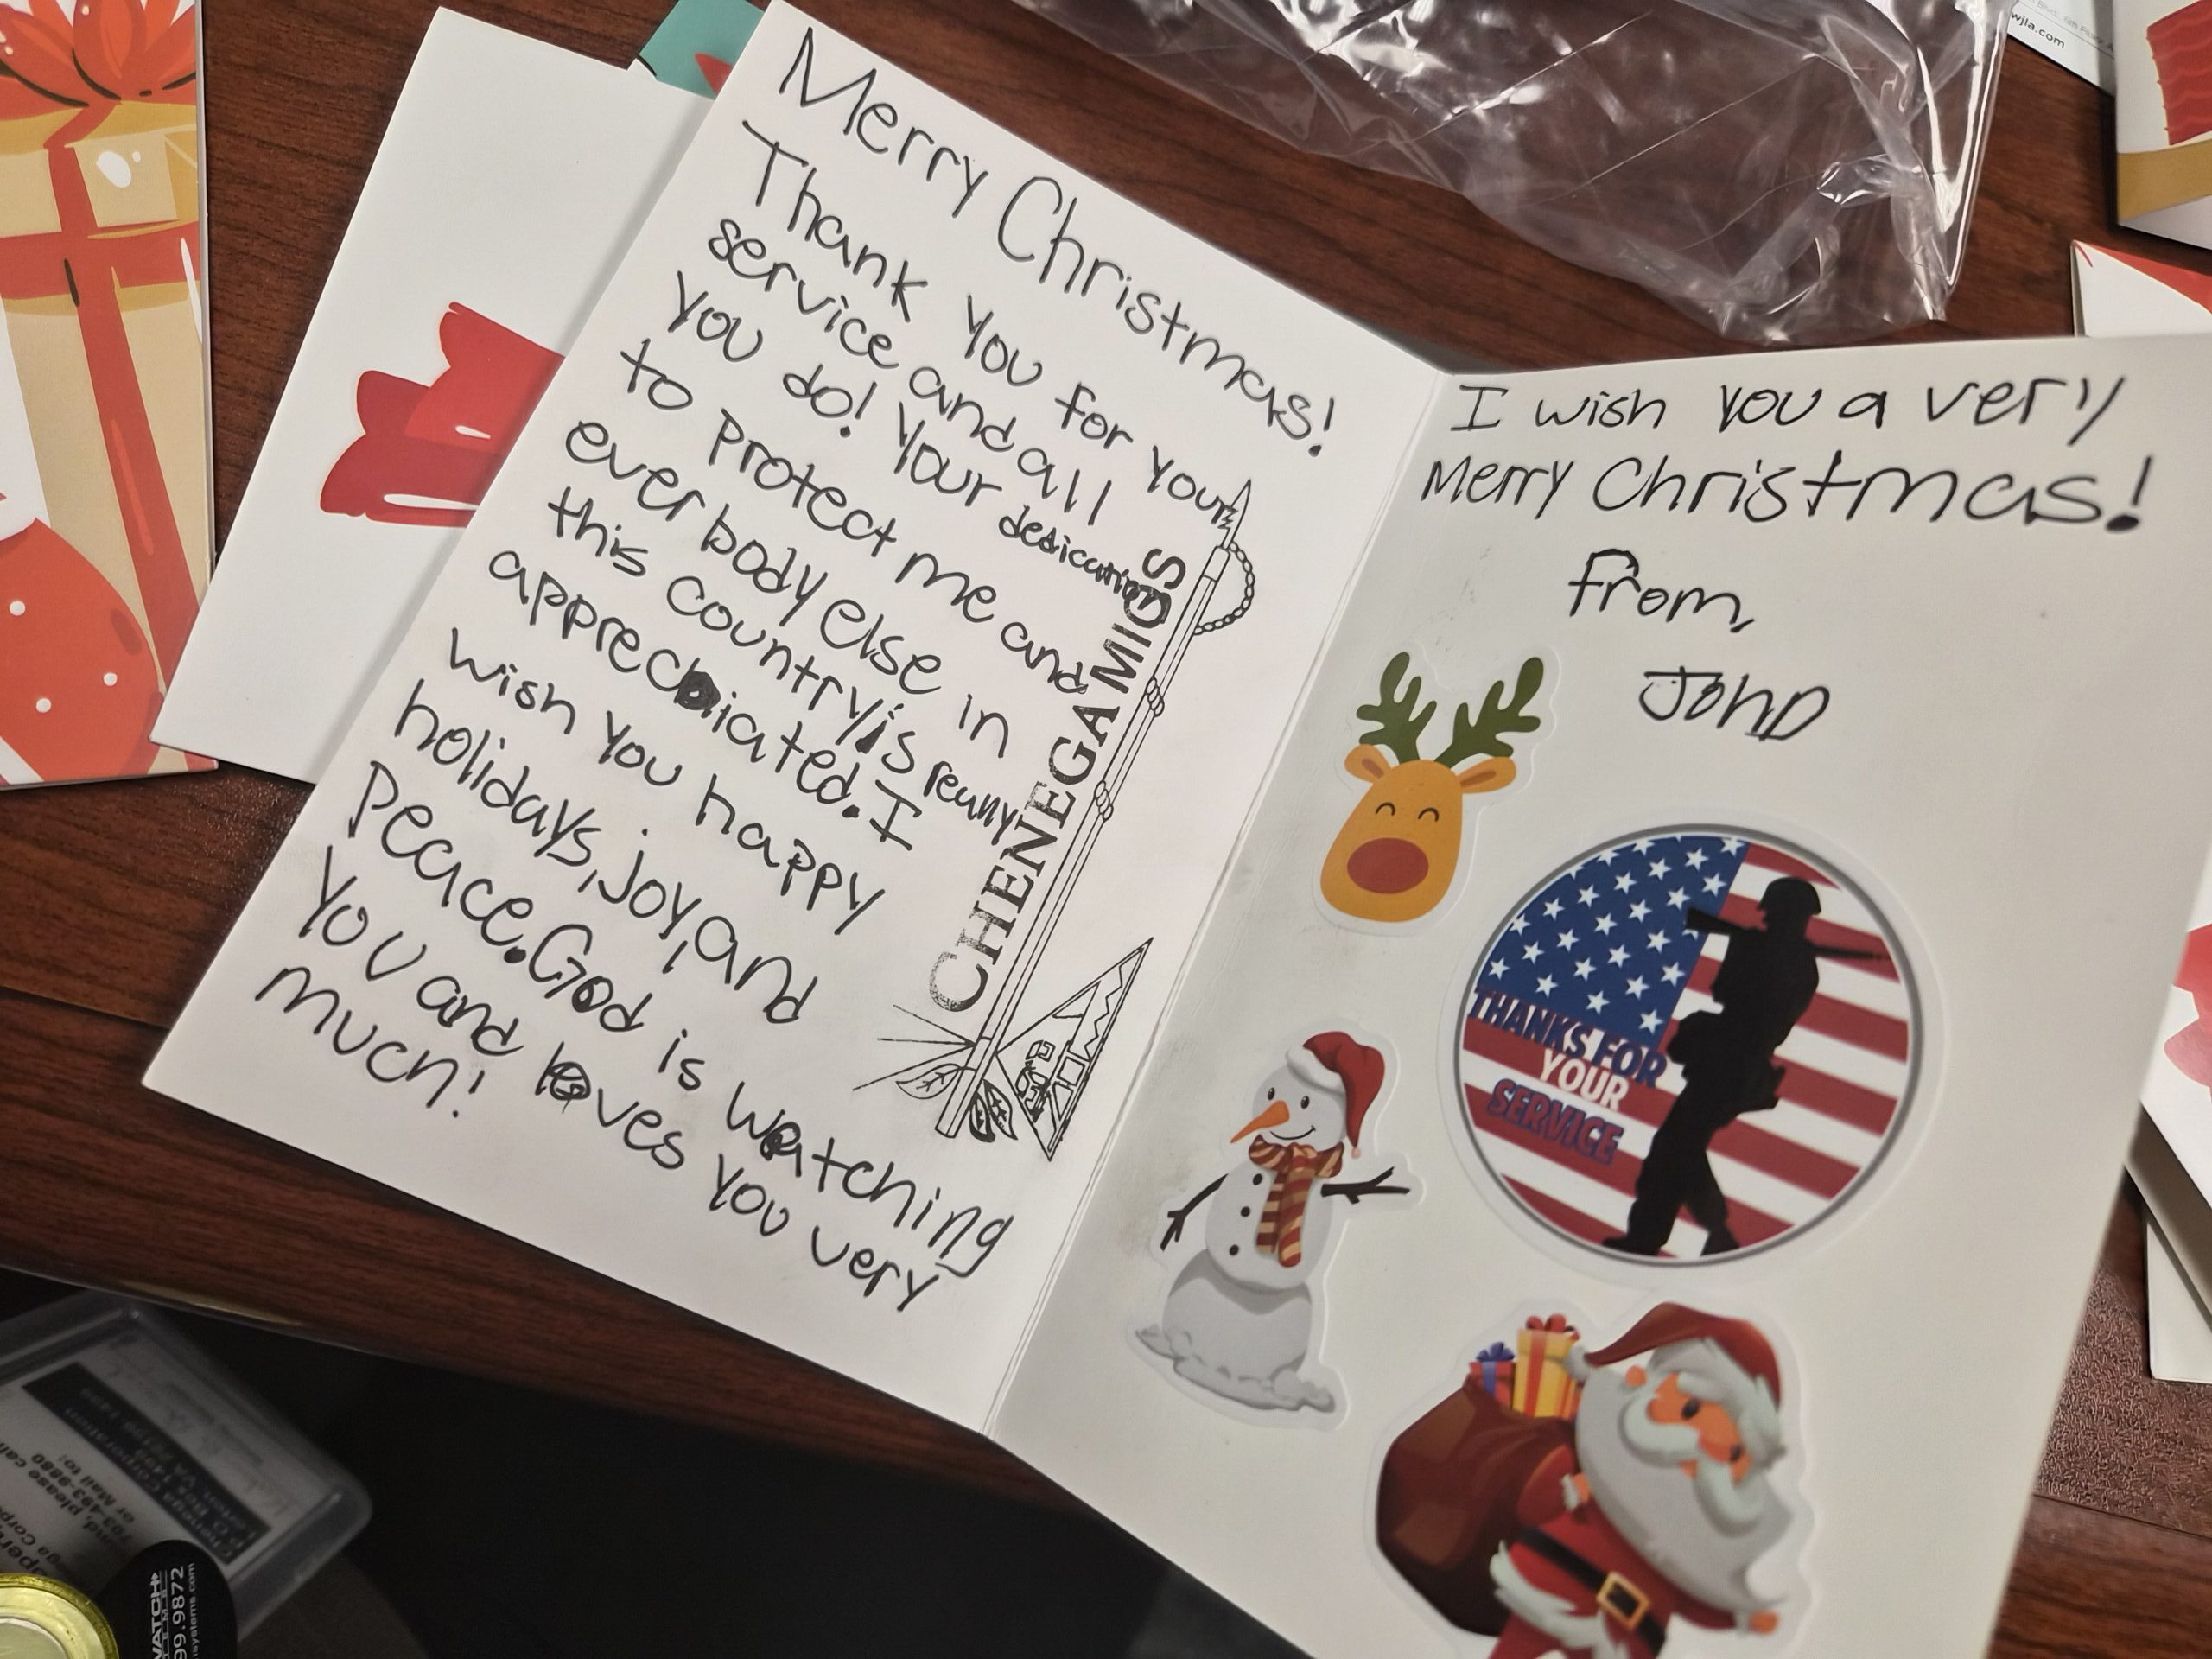 Merry Christmas!
Thank you for your
service and all
you do! Your desication
to protect me and
ever body else in
this country is reany
appreciated. I
wish you happy
holidays, joy, and
peace. God is watching
you and loves you very
much!
CHENEGA MIOS
I wish you a very
Merry Christmas!
from,
John
THANKS FOR
YOUR
SERVICE
wjla.com
493-9880
or Mail to:
please call
WATCH
99.9872